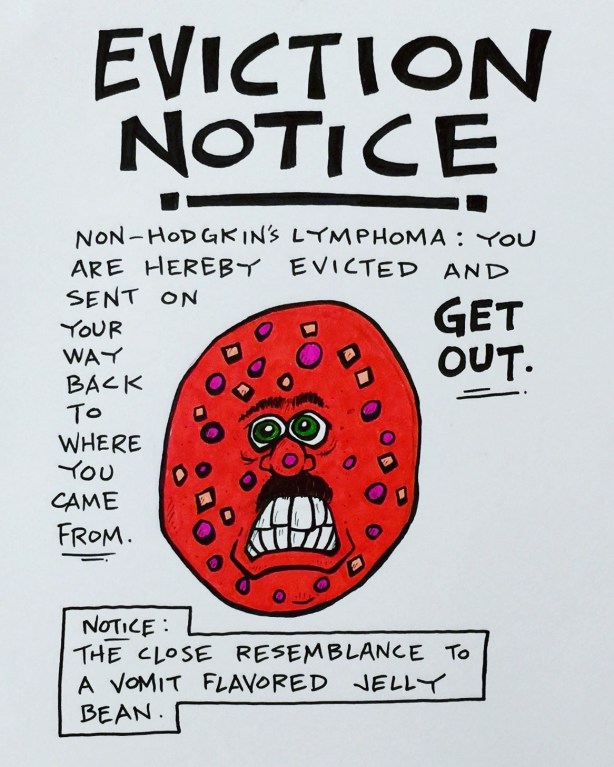 EVICTION
NOTICE
NON-HODGKIN'S LYMPHOMA: YOU
ARE HEREBY EVICTED AND
SENT ON
YOUR
WAY
BACK
TO
WHERE
YOU
CAME
FROM.
GET
OUT.
NOTICE:
THE CLOSE RESEMBLANCE TO
A VOMIT FLAVORED JELLY
BEAN.